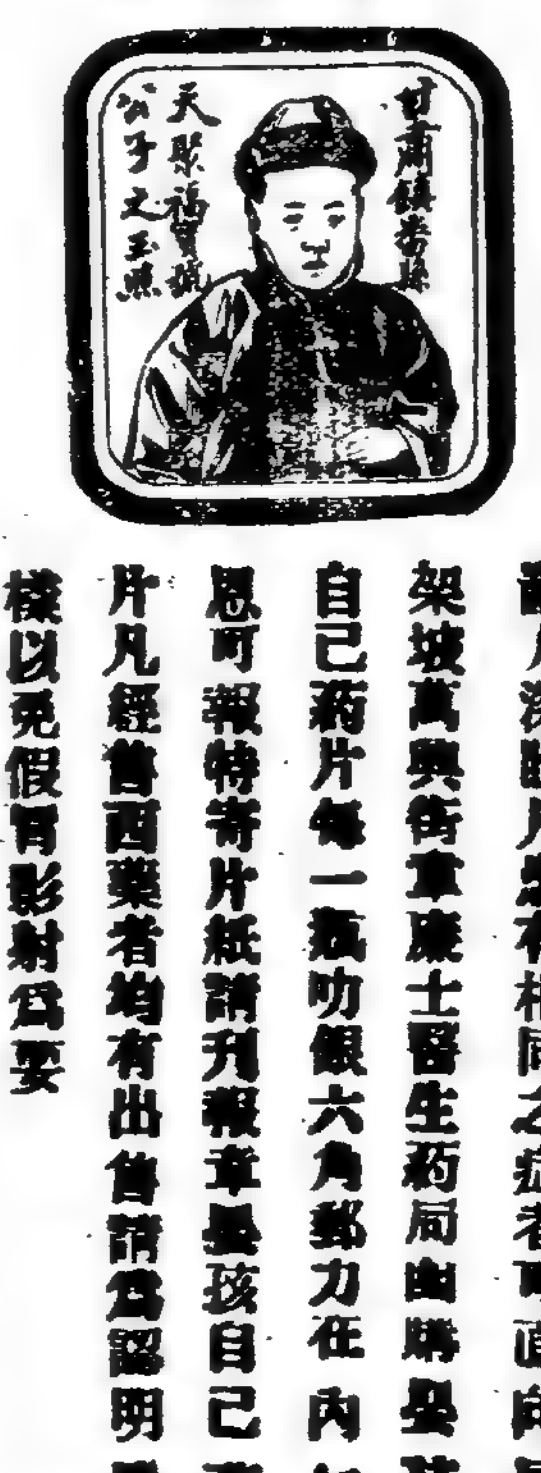 甘肅鎮番縣
天聚福寶號
公子之玉照
人深 月患有相同之症者可直向
架坡萬興街韋廉士醫生葯局函購嬰孩
自己葯片每一瓶叻銀六角郵力在內
恩可報特寄片紙請刊報章嬰孩自己
片凡經售西藥者均有出售請爲認明
樣以免假冒影射爲要